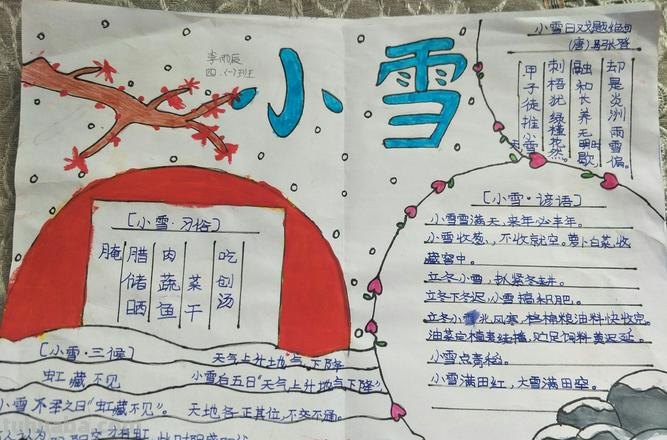 李雨辰
四.(一)班
小雪
小雪日戏题绝句
(唐)张登
甲子徒推小雪天
刺梧犹绿槿花然。
融和长养无时歇
却是炎洲雨雪偏。
[小雪·习俗]
腌腊肉
储蔬菜
晒鱼干
吃刨汤
[小雪·谚语]
小雪雪满天,来年必丰年。
小雪收葱,不收就空。萝卜白菜,收
藏窖中。
立冬小雪,抓紧冬耕。
立冬下冬迟,小雪搞积肥。
立冬小雪北风寒,棉粮油料快收完。
油菜定植麦续播,贮足饲料莫迟延。
小雪点青稻。
小雪满田红,大雪满田空。
[小雪·三候]
天气上升地气下降
虹藏不见
小雪后五日"天气上升地气下降"
小雪不
之日"虹藏不见"。天地各正其位,不交不通。